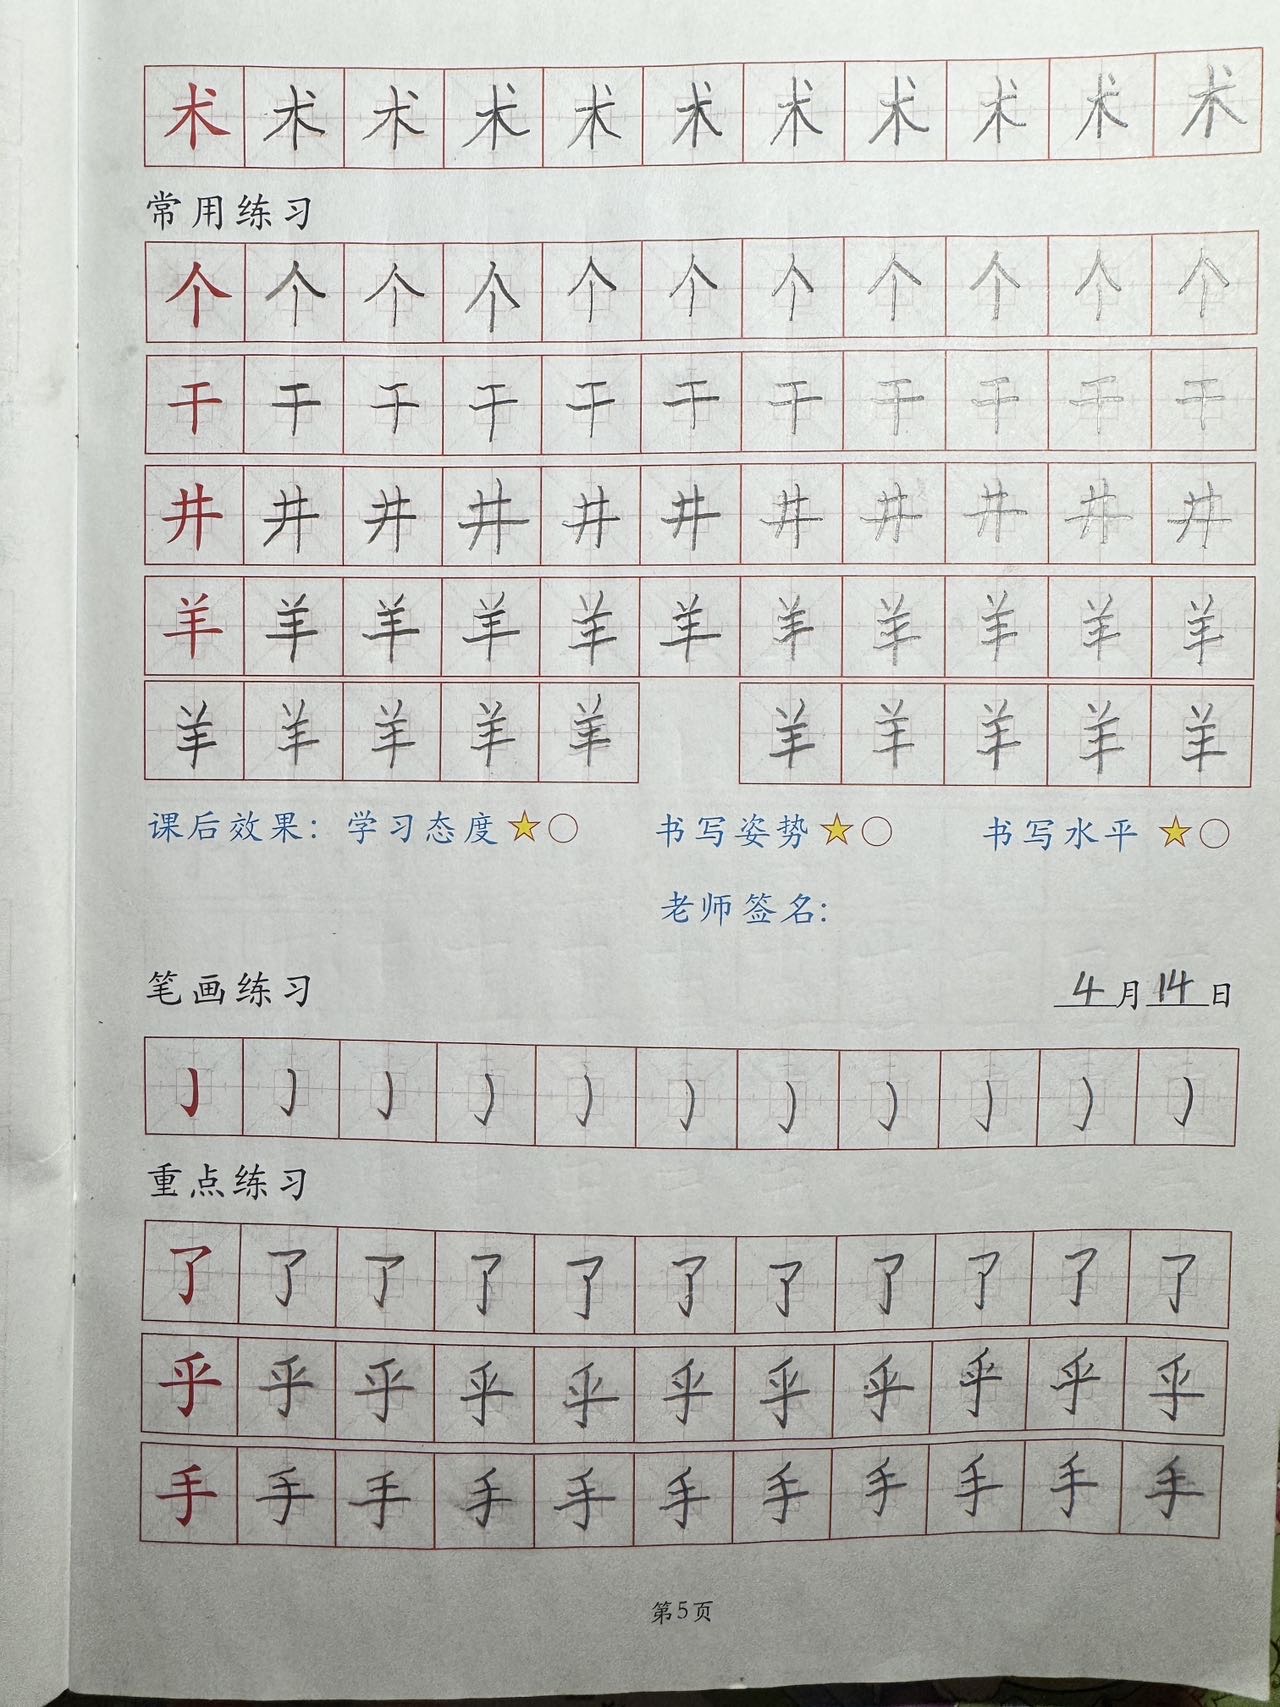 术术术术术术术术术术术
常用练习
个个个个个个个个个个个
干干干干干干干干干干干
井井井井井井井井井井井
羊羊羊羊羊羊羊羊羊羊羊
羊羊羊羊羊 羊羊羊羊羊
课后效果：学习态度★○ 书写姿势★○ 书写水平★○
老师签名：
笔画练习 4月14日
亅亅亅亅亅亅亅亅亅亅亅
重点练习
了了了了了了了了了了了
乎乎乎乎乎乎乎乎乎乎乎
手手手手手手手手手手手
第5页